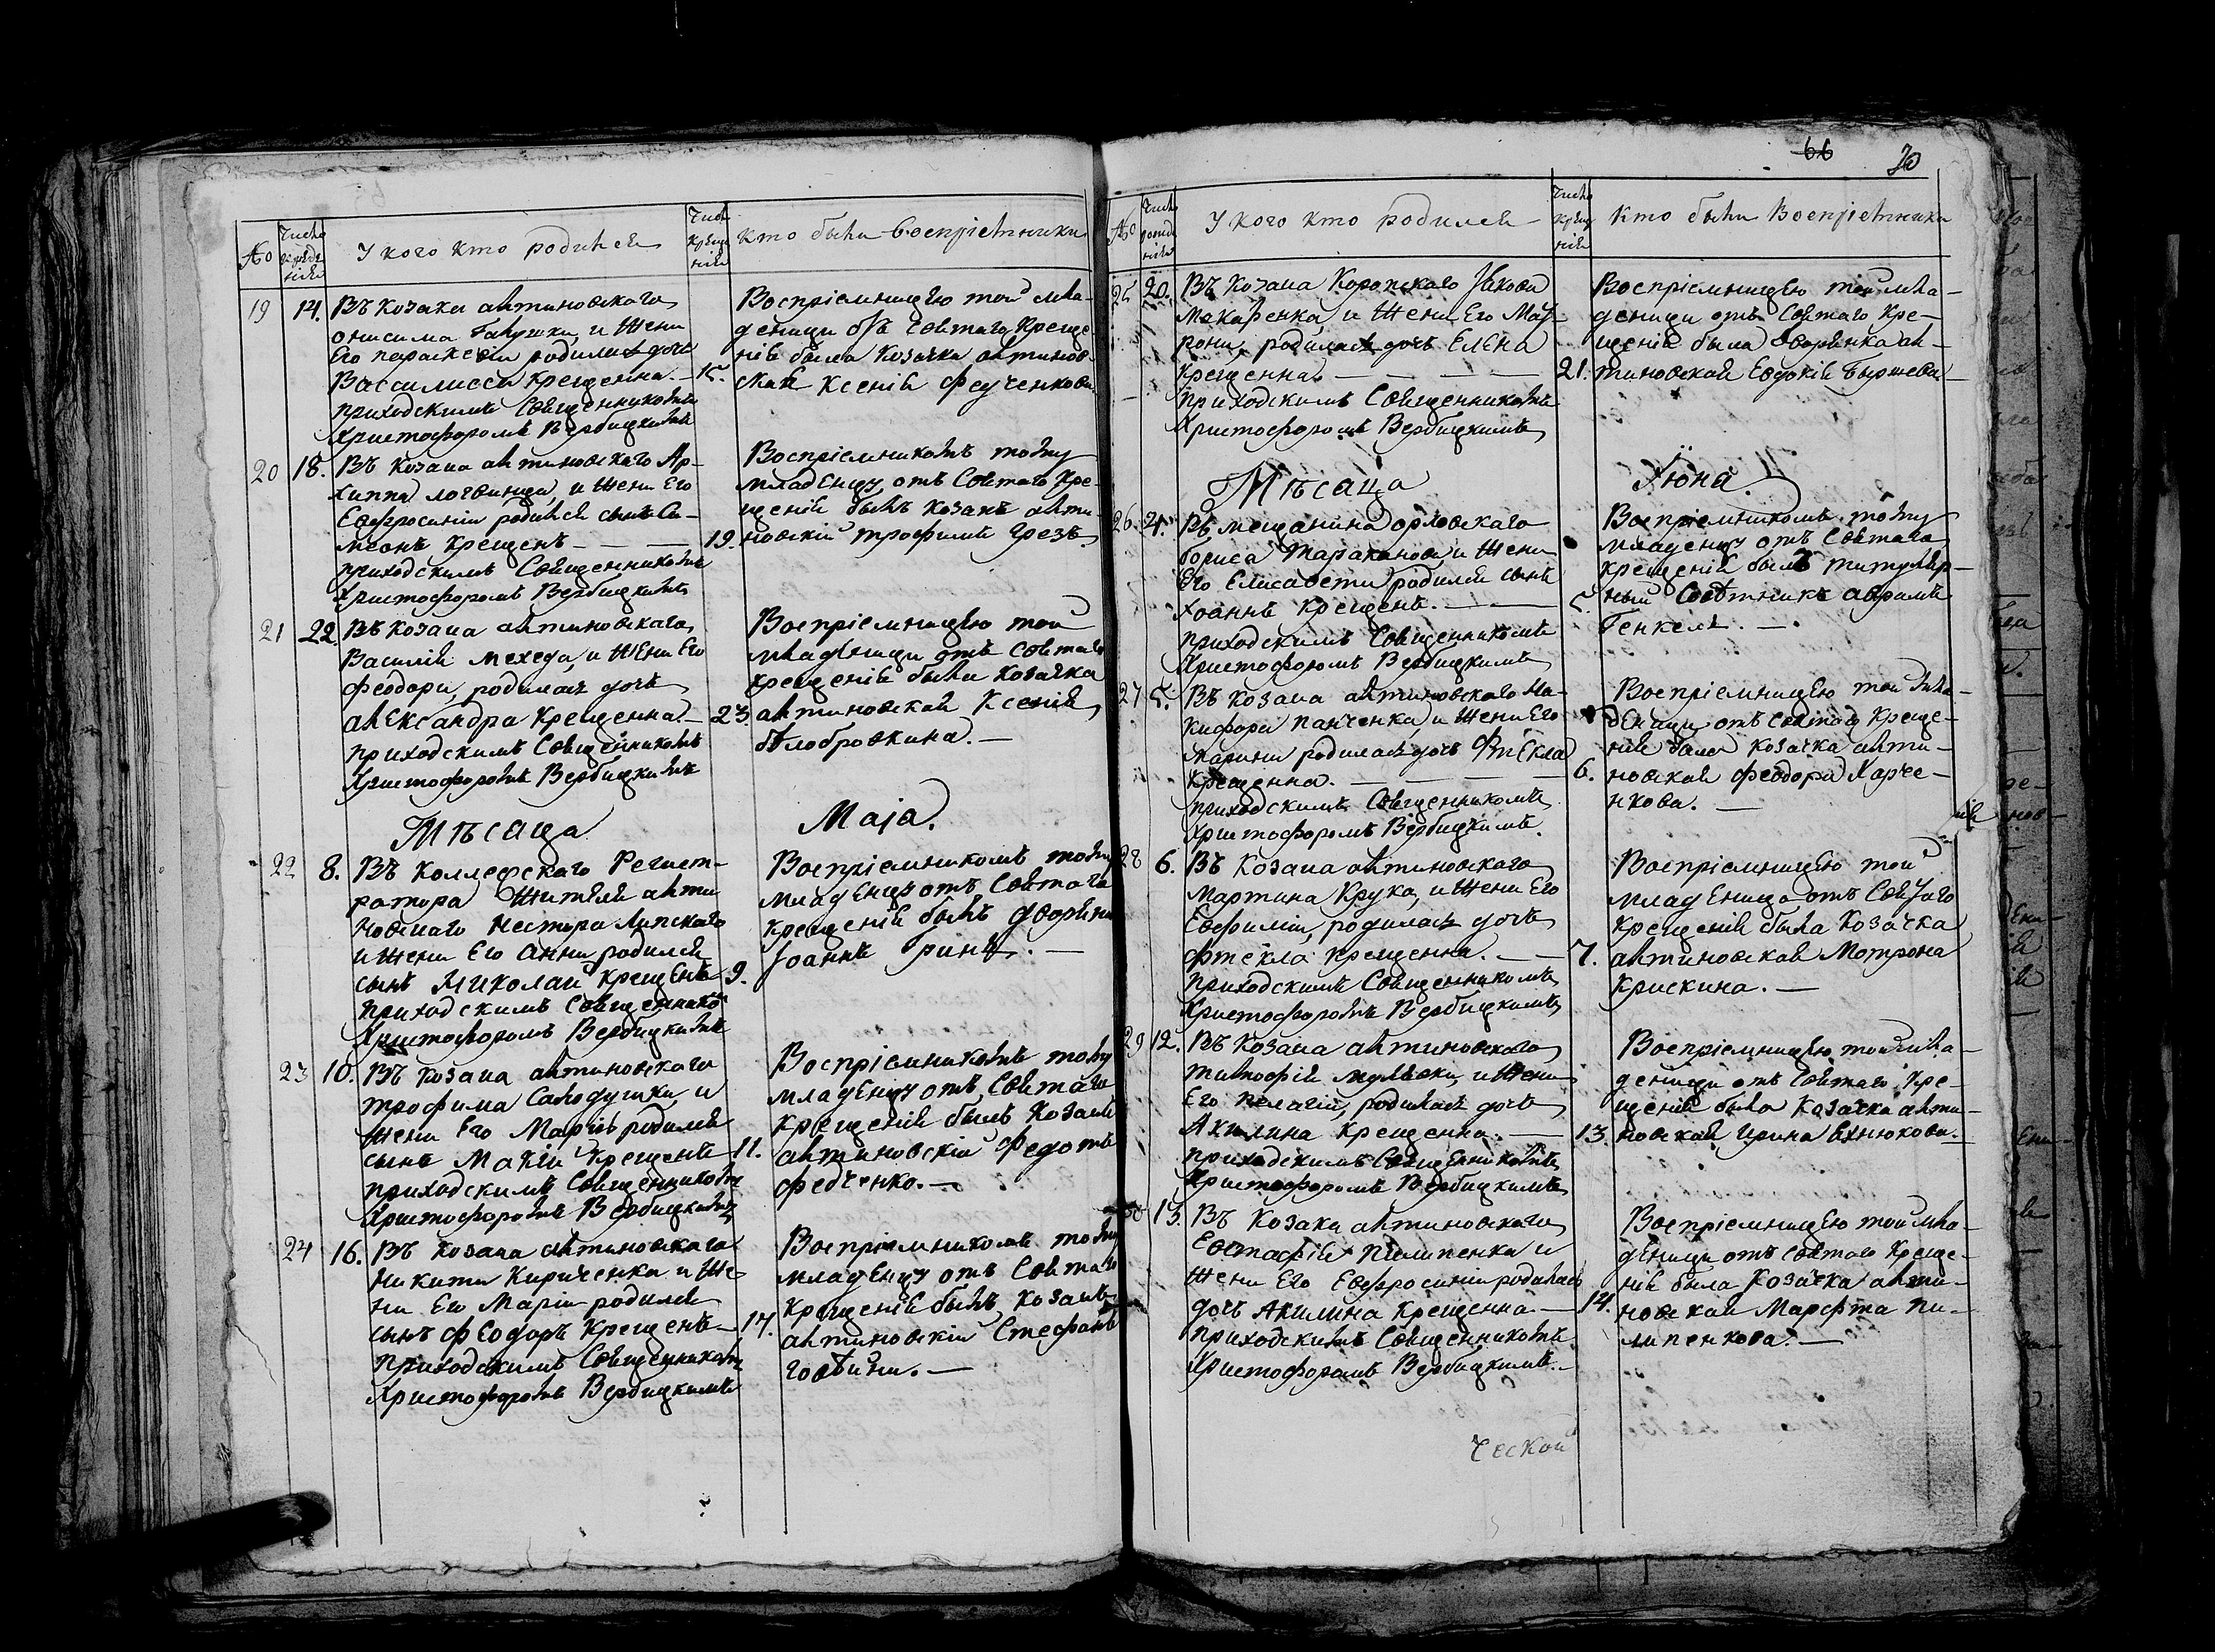 66 70
№
Число рождения
У кого кто родился
Число крещения
Кто были Воспріетники
19
14.
Въ козака алтиновского
онисима Галушки, и жени
Его параскевіи родилась дочь
Василисса Крещенна. —
приходскимъ Священникомъ
Христофоромъ Вербицкимъ
15.
Воспріемницею той мла-
деници отъ Святаго Креще-
нія была Козачка алтинов-
ская Ксенія Федченкова
20
18.
Въ козака алтиновского Ар-
хиппа логвинца, и жени Его
Евфросиніи родился сынъ Си-
меонъ Крещенъ —
приходскимъ Священникомъ
Христофоромъ Вербицкимъ
19.
Воспріемникомъ тому
младенцу отъ Святаго Кре-
щенія былъ козакъ алти-
новскій трофимъ Грезъ.
21
22.
Въ козака алтиновского
Василія мехеда, и жени Его
феодори, родилась дочь
александра Крещенна. —
приходскимъ Священникомъ
Христофоромъ Вербицкимъ
23.
Воспріемницею той
младеници отъ Святаго
крещенія была козачка
алтиновская Ксенія
бѣлобровкина. —
Мѣсяца
Маія.
22
8.
Въ Коллежского Регист-
ратора жителя алти
новского Нестора Липского
и жени Его Анни родился
сынъ Николай крещенъ
приходскимъ Священнико
Христофоромъ Вербицкимъ
9.
Воспріемникомъ тому
младенцу отъ Святаго
крещенія былъ дворянин
Іоаннъ Гринъ. —
23
10.
Въ козака алтиновского
трофима Солодушки, и
жени Его Маріи родился
сынъ Крещенъ
приходскимъ Священникомъ
Христофоромъ Вербицкимъ
11.
Воспріемникомъ тому
младенцу отъ Святаго
Крещенія былъ Козакъ
алтиновскій Федотъ
федченко. —
24
16.
Въ козака алтиновского
Никити Кириченка и же-
ни Его Маріи родился
сынъ феодоръ Крещенъ —
приходскимъ Священникомъ
Христофоромъ Вербицкимъ
17.
Воспріемникомъ тому
младенцу отъ Святаго
Крещенія былъ козакъ
алтиновскій Стефанъ
№
Число рождения
У кого кто родился
Число крещения
Кто были Воспріетники
25
20.
Въ козака Коропского Якова
Макаренка, и жени Его Мат-
рони, родилась дочь Елена
Крещенна. —
приходскимъ Священникомъ
Христофоромъ Вербицкимъ
21.
Воспріемницею той мла-
деници отъ Святаго Кре-
щенія была дворянка ал-
тиновская Евдокія
Мѣсяца
Іюня.
26.
4.
Въ мещанина орловского
бориса Тараканова и жени
Его Елисавети родился сынъ
Іоаннъ Крещенъ. —
приходскимъ Священникомъ
Христофоромъ Вербицкимъ
5.
Воспріемникомъ тому
младенцу отъ Святаго
крещенія былъ титуляр-
ный Совѣтникъ аврамъ
Генкель. —
27
5.
Въ козака алтиновского Ни-
кифора панченка, и жени Его
Марини родилась дочь Фтекла
Крещенна. —
приходскимъ Священникомъ
Христофоромъ Вербицкимъ.
6.
Воспріемницею той мла-
деници отъ Святаго Креще-
нія была козачка алти-
новская феодора Харче-
нкова. —
28
6.
Въ козака алтиновского
Мартина Крука, и жени Его
Евфиміи, родилась дочь
Фтекла Крещенна. —
приходскимъ Священникомъ
Христофоромъ Вербицкимъ
7.
Воспріемницею той
младеници отъ Святаго
Крещенія была Козачка
алтиновская Мотрона
Крискина. —
29
12.
Въ козака алтиновского
тимофія и жени
Его пелагіи, родилась дочь
Акилина Крещенна. —
приходскимъ Священникомъ
Христофоромъ Вербицкимъ
13.
Воспріемницею той мла-
деници отъ Святаго Кре-
щенія была Козачка алти-
новская Ирина
30
13.
Въ козака алтиновского
Евстафія пилипенка и
жени Его Евфросиніи родилась
дочь Акилина Крещенна —
приходскимъ Священникомъ
Христофоромъ Вербицкимъ. —
14.
Воспріемницею той мла-
деници отъ Святаго Креще-
нія была Козачка алти-
новская Марфта пи-
липенкова. —
ческой